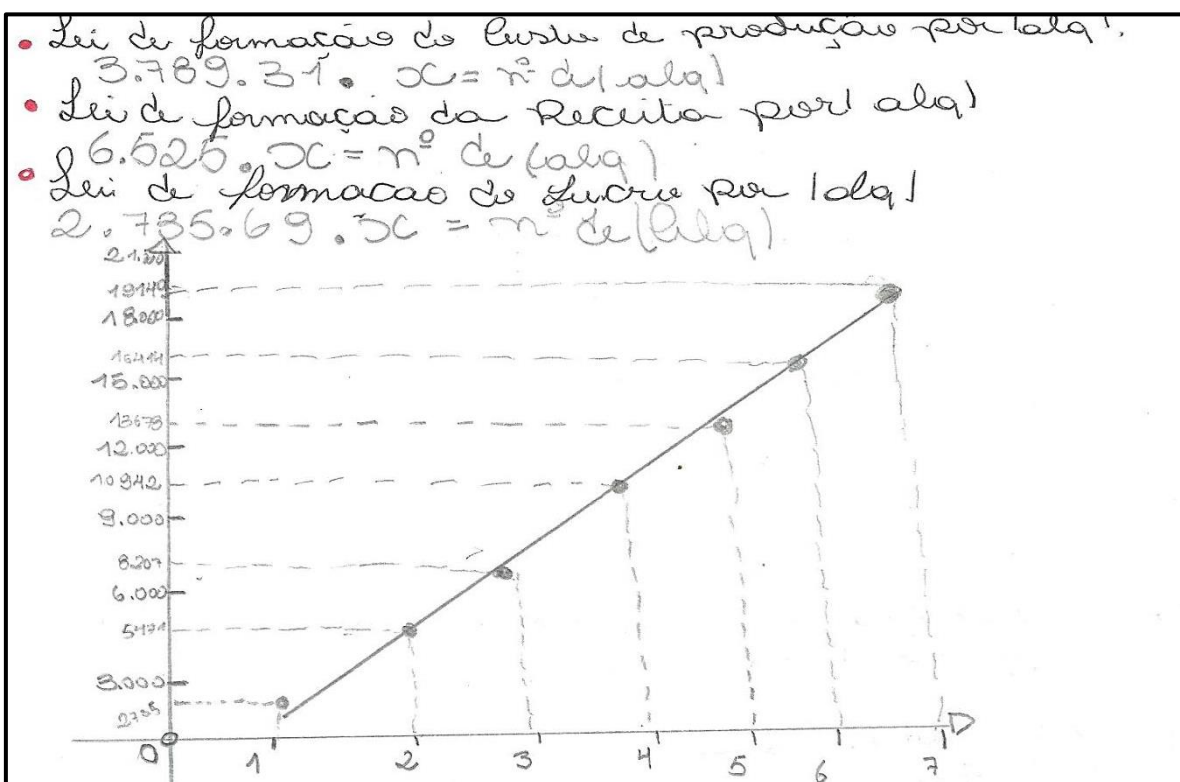 • Lei de formação do Custo de produção por |alq|.
3.789.31. x = nº de |alq|
• Lei de formação da Receita por |alq|
6.525.x = nº de (alq)
• Lei de formacao do Lucro por |alq|
2.735.69.x = nº de (alq)
21.000
19149
18.000
16414
15.000
13678
12.000
10942
9.000
8.207
6.000
5471
3.000
2735
0 1 2 3 4 5 6 7